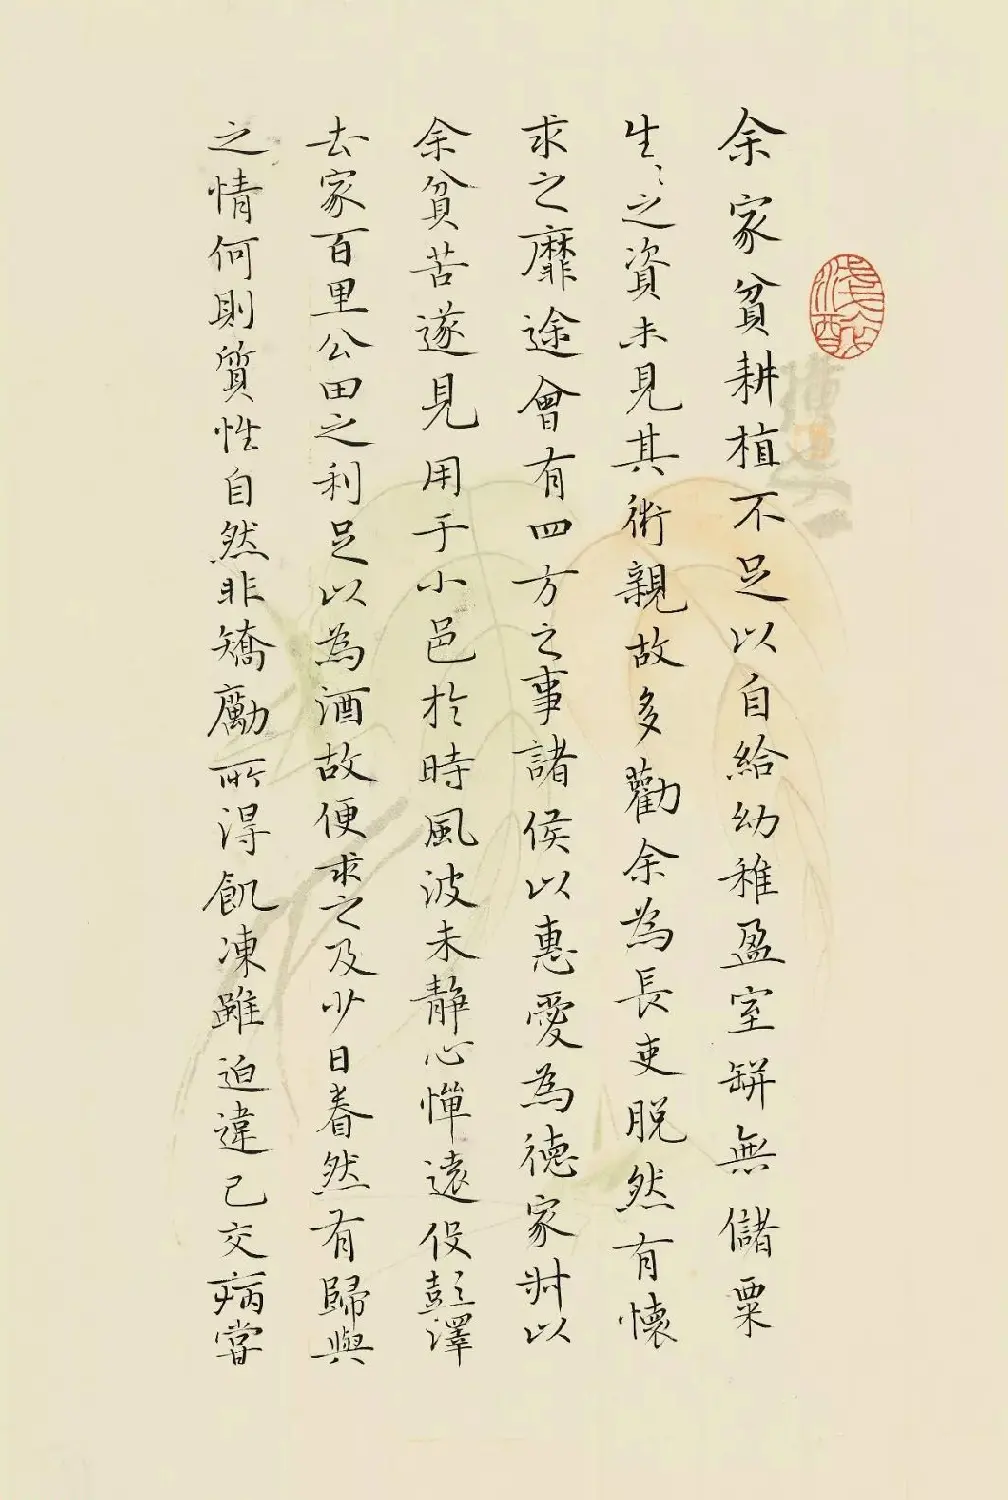 余家貧耕植不足以自給幼稚盈室缾無儲粟
生〻之資未見其術親故多勸余為長吏脱然有懷
求之靡途會有四方之事諸侯以惠愛為德家叔以
余貧苦遂見用于小邑於時風波未靜心憚遠役彭澤
去家百里公田之利足以為酒故便求之及少日眷然有歸與
之情何則質性自然非矯勵所得飢凍雖迫違己交病嘗